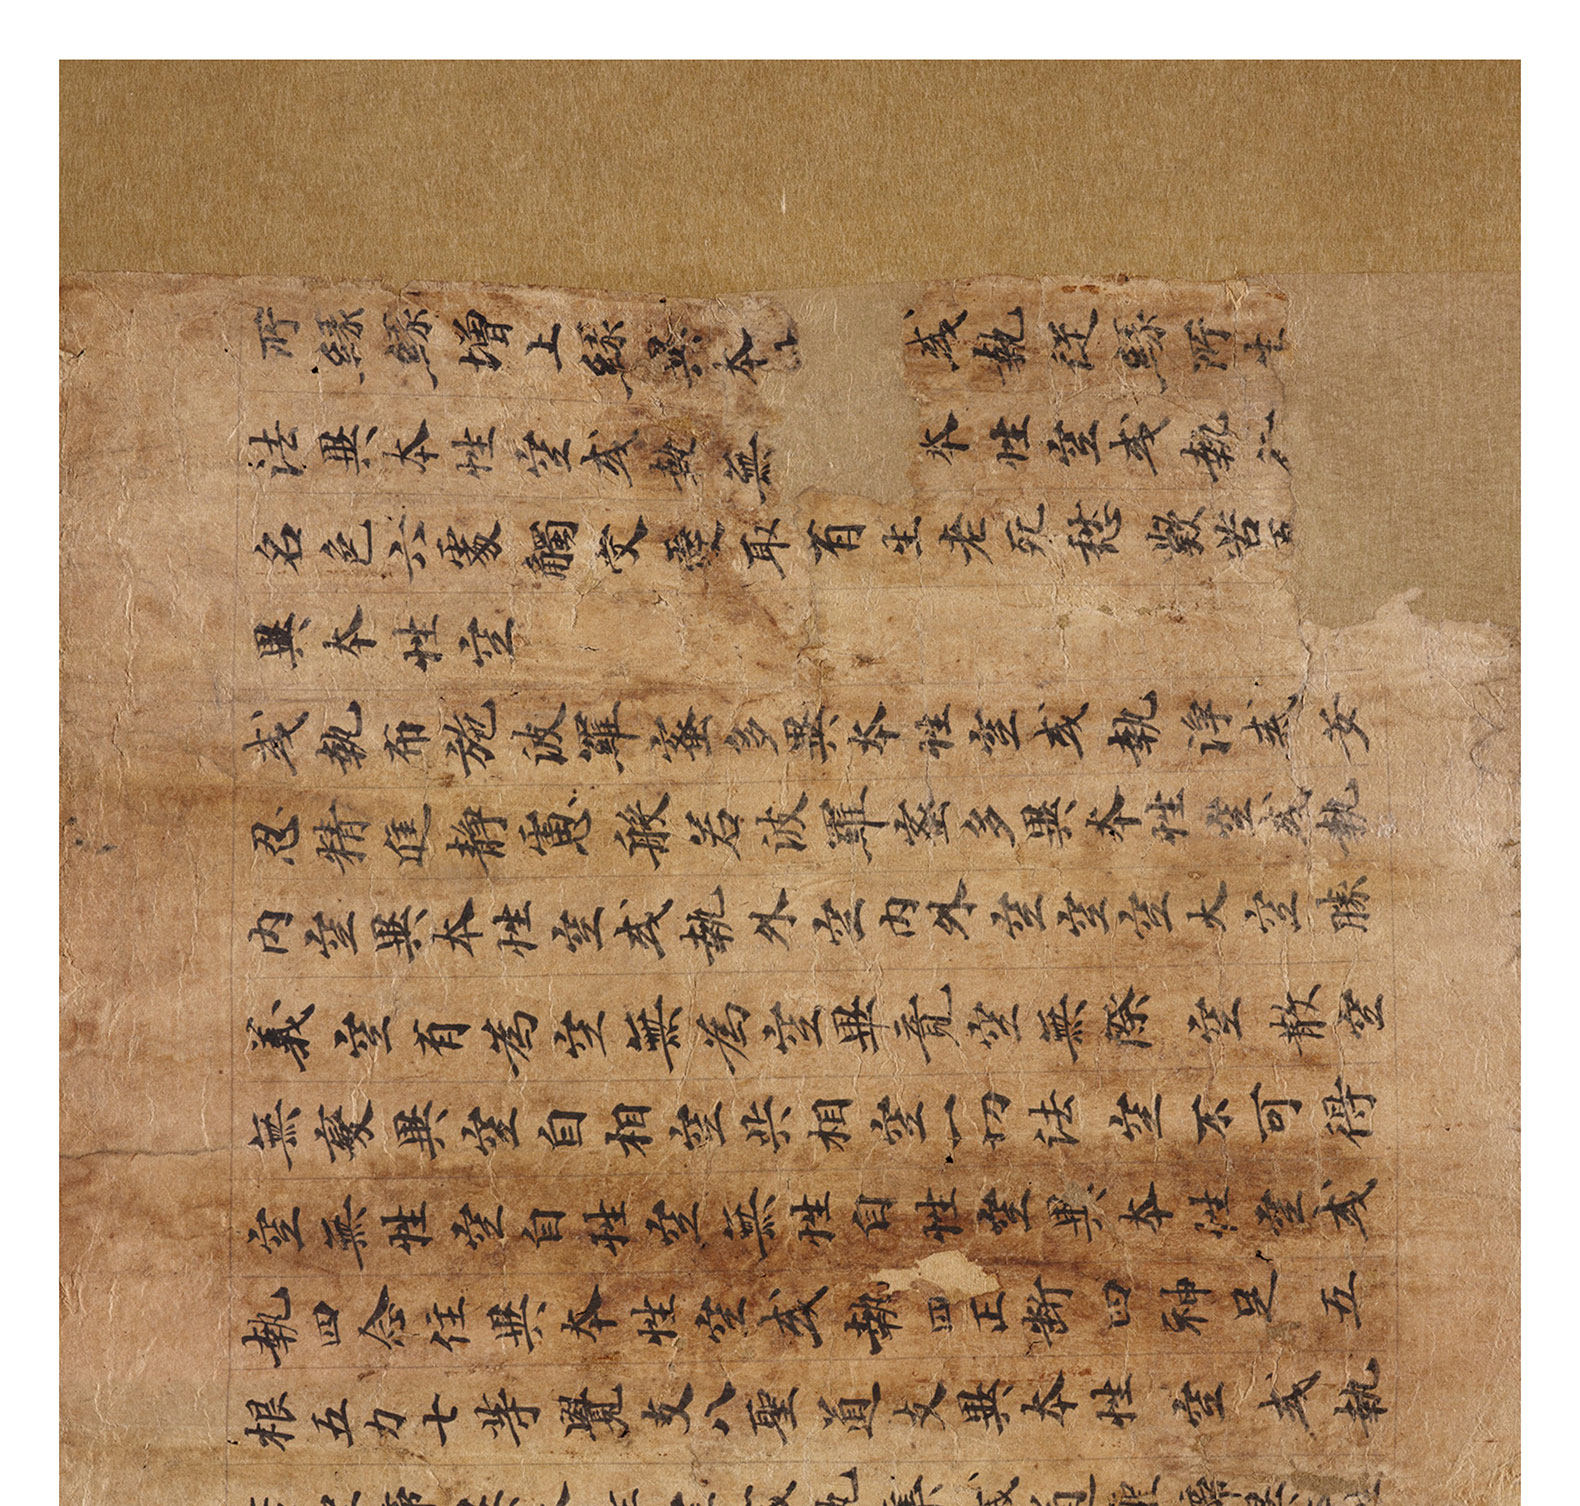 所緣緣增上緣異本 或執從緣所生
法異本性空或執無 本性空或執
名色六處觸受愛取有生老死愁歎苦
異本性空
或執布施波羅蜜多異本性空或執淨戒安
忍精進靜慮般若波羅蜜多異本性空或執
內空異本性空或執外空內外空空空大空勝
義空有為空無為空畢竟空無際空散空
無變異空自相空共相空一切法空不可得
空無性空自性空無性自性空異本性空或
執四念住異本性空或執四正斷四神足五
根五力七等覺支八聖道支異本性空或執